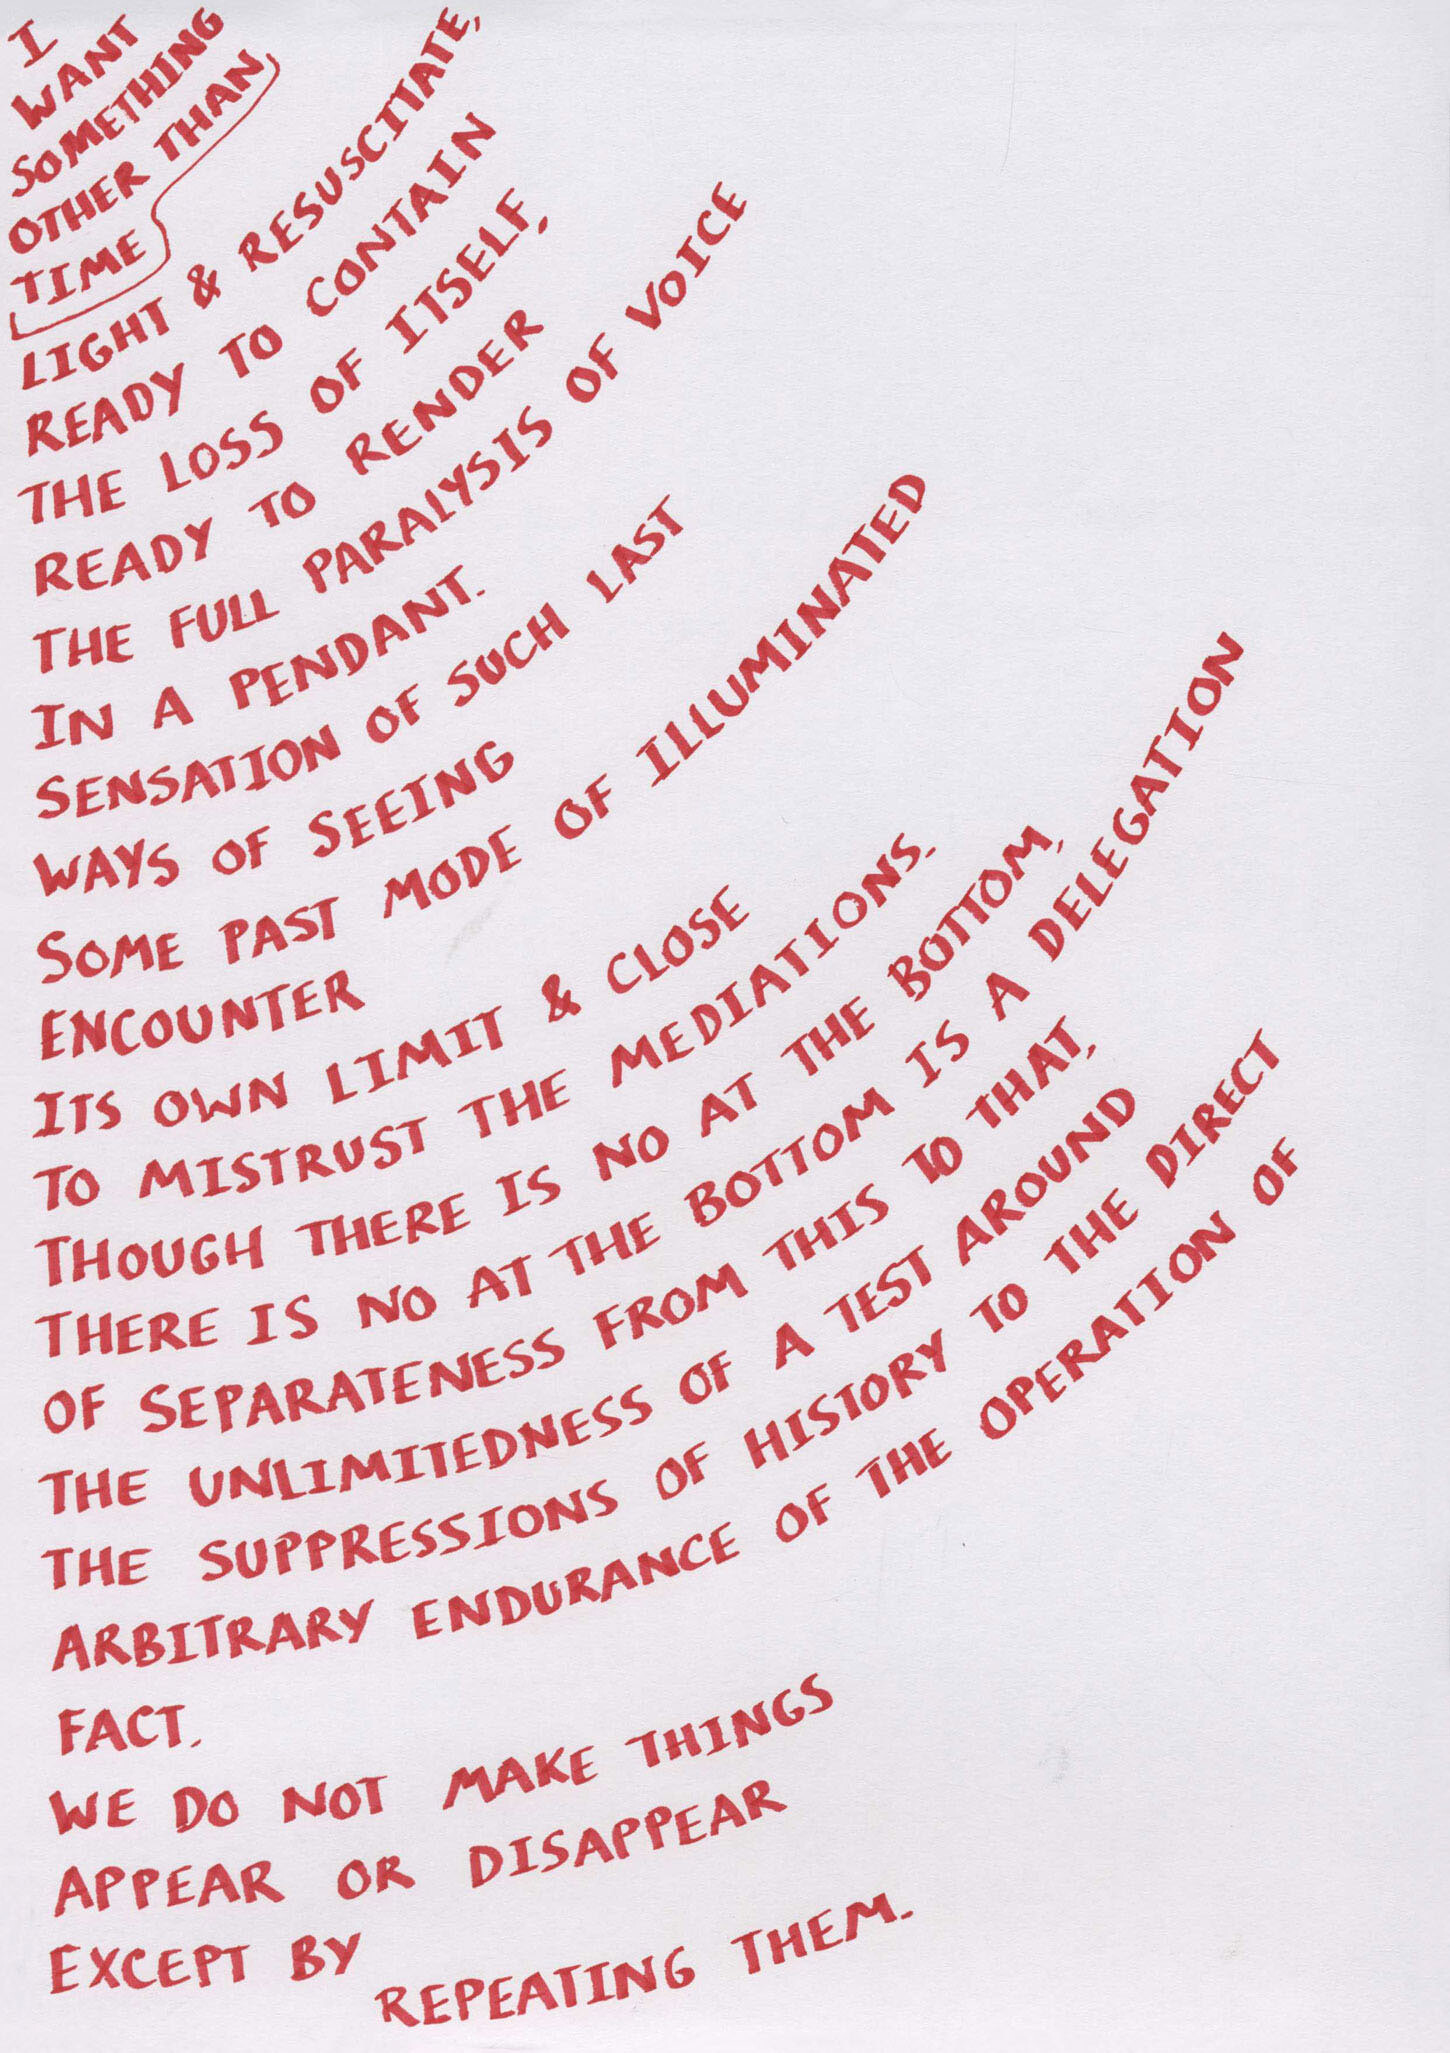 I
WANT
SOMETHING
OTHER THAN
TIME
LIGHT & RESUSCITATE,
READY TO CONTAIN
THE LOSS OF ITSELF,
READY TO RENDER
THE FULL PARALYSIS OF VOICE
IN A PENDANT.
SENSATION OF SUCH LAST
WAYS OF SEEING
SOME PAST MODE OF ILLUMINATED
ENCOUNTER
ITS OWN LIMIT & CLOSE
TO MISTRUST THE MEDIATIONS.
THOUGH THERE IS NO AT THE BOTTOM,
THERE IS NO AT THE BOTTOM IS A DELEGATION
OF SEPARATENESS FROM THIS TO THAT,
THE UNLIMITEDNESS OF A TEST AROUND
THE SUPPRESSIONS OF HISTORY TO THE DIRECT
ARBITRARY ENDURANCE OF THE OPERATION OF
FACT.
WE DO NOT MAKE THINGS
APPEAR OR DISAPPEAR
EXCEPT BY
REPEATING THEM.